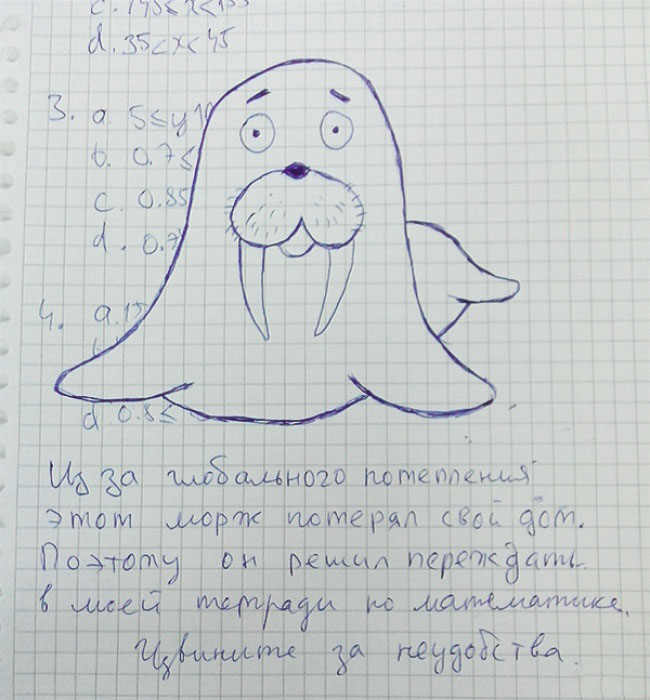 d. 35<x<45
3. a. 5≤y
b. 0.7≤
c. 0.85
d. 0.7
4. a. 15
d 0.8≤
Из за глобального потепления
этот морж потерял свой дом.
Поэтому он решил переждать
в моей тетради по математике.
Извините за неудобства.